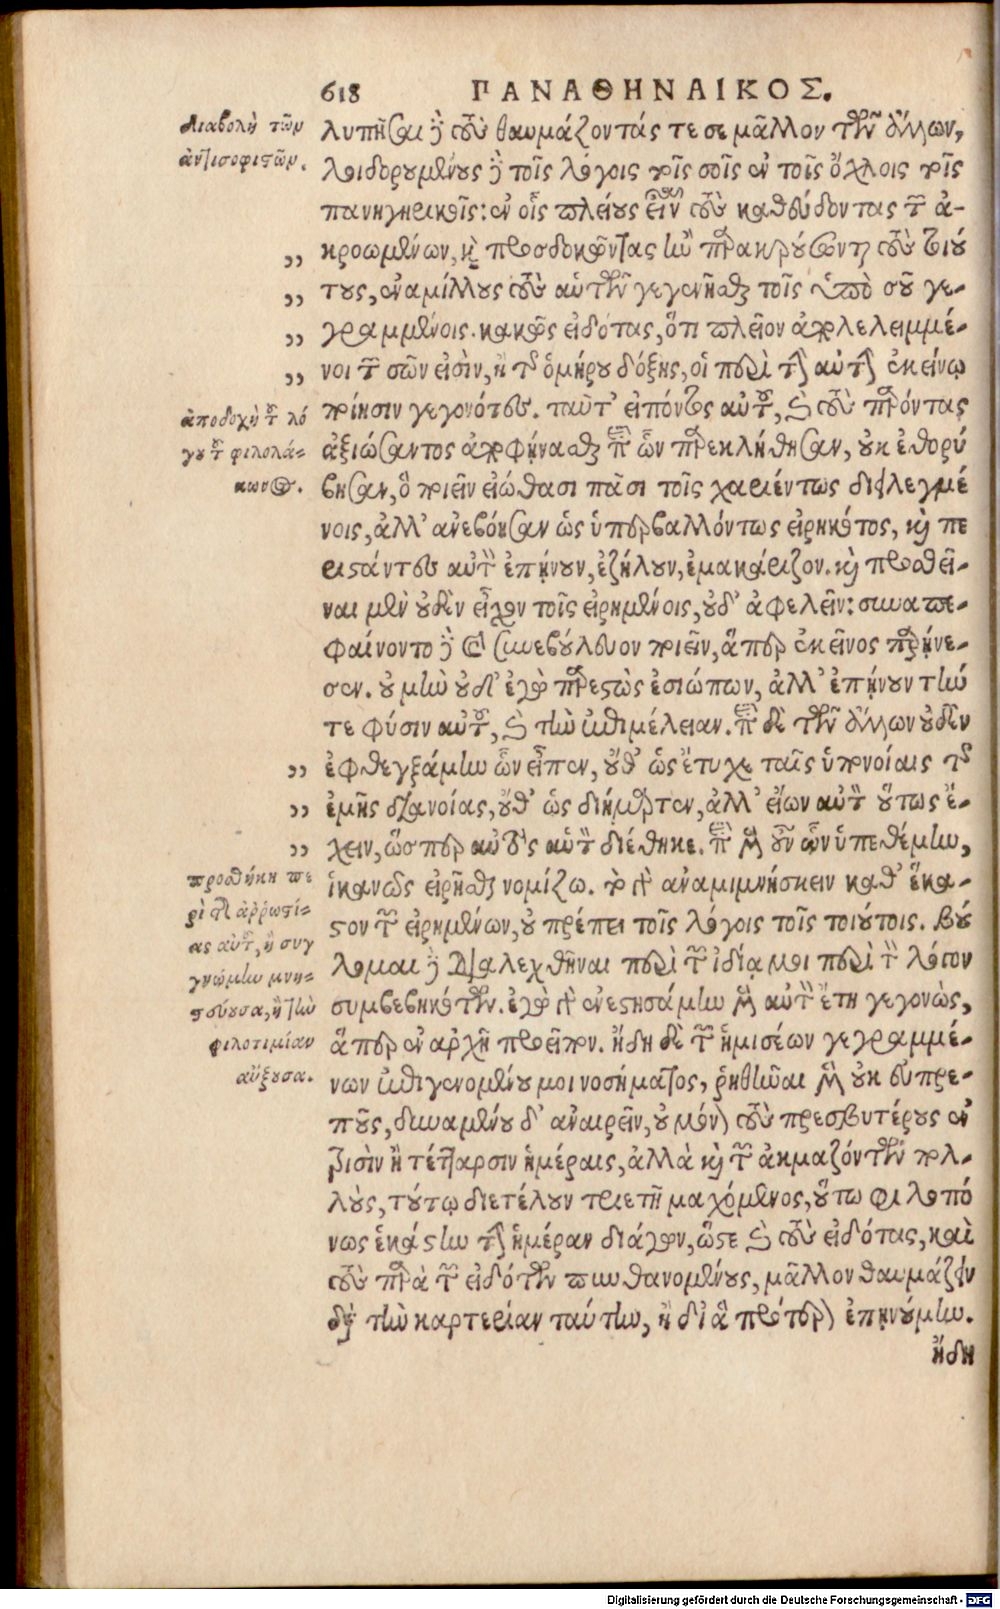 618 ΠΑΝΑΘΗΝΑΙΚΟΣ.
διαβολὴ τῶν
ἀντισοφιστῶν.
λυπῆσαι δὲ τοὺς θαυμάζοντάς τε σε μᾶλλον τῶν ἄλλων,
λοιδορουμένους δὲ τοῖς λόγοις τοῖς σοῖς ἐν τοῖς ὄχλοις τοῖς
πανηγυρικοῖς: ἐν οἷς πλείους εἶναι τοὺς καθεύδοντας τῶν ἀ-
„ κροωμένων, καὶ προσδοκῶντας ἢν παρακρούσωνται τοὺς τοιού
„ τους, ἐναμίλλους τοὺς αὑτῶν γεγενῆσθαι τοῖς ὑπὸ σοῦ γε-
„ γραμμένοις. κακῶς εἰδότας, ὅτι πλεῖον ἀπολελειμμέ-
„ νοι τῶν σῶν εἰσὶν, ἢ τῆς ὁμήρου δόξης, οἱ περὶ τὴν αὐτὴν ἐκείνῳ
ἀποδοχὴ τοῦ λό
γου τοῦ φιλολά-
κωνος.
ποίησιν γεγονότες. ταῦτ’ εἰπόντος αὐτοῦ, καὶ τοὺς παρόντας
ἀξιώσαντος ἀποφήνασθαι περὶ ὧν παρεκλήθησαν, οὐκ ἐθορύ
βησαν, ὃ ποιεῖν εἰώθασι πᾶσι τοῖς χαριέντως διειλεγμέ
νοις, ἀλλ’ ἀνεβόησαν ὡς ὑπερβαλλόντως εἰρηκότος, καὶ πε
ριστάντες αὐτὸν ἐπῄνουν, ἐζήλουν, ἐμακάριζον. καὶ προσθεῖ-
ναι μὲν οὐδὲν εἶχον τοῖς εἰρημένοις, οὐδ’ ἀφελεῖν: συναπε-
φαίνοντο δὲ καὶ συνεβούλευον ποιεῖν, ἅπερ ἐκεῖνος παρῄνε-
σεν. οὐ μὴν οὐδ’ ἐγὼ παρεστὼς ἐσιώπων, ἀλλ’ ἐπῄνουν τήν
τε φύσιν αὐτοῦ, καὶ τὴν ἐπιμέλειαν. περὶ δὲ τῶν ἄλλων οὐδὲν
„ ἐφθεγξάμην ὧν εἶπεν, οὔθ’ ὡς ἔτυχε ταῖς ὑπονοίαις τῆς
„ ἐμῆς διανοίας, οὔθ’ ὡς διήμαρτεν, ἀλλ’ εἴων αὐτὸν οὕτως ἔ-
„ χειν, ὥσπερ αὐτὸς αὑτὸν διέθηκε. περὶ μὲν οὖν ὧν ὑπεθέμην,
προσθήκη πε
ρὶ τῆς ἀῤῥωστί-
ας αὐτοῦ, ἢ συγ
γνώμην μνη-
στεύουσα, ἢ τὴν
φιλοτιμίαν
αὔξουσα.
ἱκανῶς εἰρῆσθαι νομίζω. τὸ γὰρ ἀναμιμνήσκειν καθ’ ἕκα-
στον τῶν εἰρημένων, οὐ πρέπει τοῖς λόγοις τοῖς τοιούτοις. βού
λομαι δὲ διαλεχθῆναι περὶ τῶν ἰδίᾳ μοι περὶ τὸν λόγον
συμβεβηκότων. ἐγὼ γὰρ ἐνεστησάμην μὲν αὐτὸν ἔτη γεγονὼς,
ἅπερ ἐν ἀρχῇ προεῖπον. ἤδη δὲ τῶν ἡμισέων γεγραμμέ-
νων ἐπιγενομένου μοι νοσήματος, ῥηθῆναι μὲν οὐκ εὐπρε-
ποῦς, δυναμένου δ’ ἀναιρεῖν, οὐ μόνον τοὺς πρεσβυτέρους ἐν
τρισὶν ἢ τέτταρσιν ἡμέραις, ἀλλὰ καὶ τῶν ἀκμαζόντων πολ-
λοὺς, τούτῳ διετέλουν τριετῆ μαχόμενος, οὕτω φιλοπό
νως ἑκάστην τὴν ἡμέραν διάγων, ὥστε καὶ τοὺς εἰδότας, καὶ
τοὺς παρὰ τῶν εἰδότων πυνθανομένους, μᾶλλον θαυμάζειν
διὰ τὴν καρτερίαν ταύτην, ἢ δι’ ἃ πρότερον ἐπῃνούμην.
ἤδη
Digitalisierung gefördert durch die Deutsche Forschungsgemeinschaft - DFG